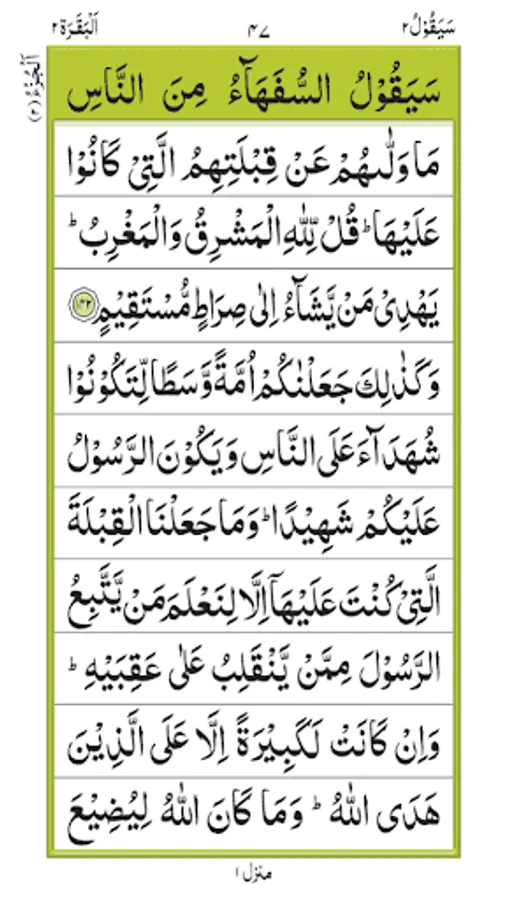 سَيَقُوْلُ ٢
٤٧
اَلْبَقَرَة ٢
اَلْجُزْءُ (٢)
سَيَقُوْلُ السُّفَهَآءُ مِنَ النَّاسِ
مَا وَلّٰىهُمْ عَنْ قِبْلَتِهِمُ الَّتِيْ كَانُوْا
عَلَيْهَا ؕ قُلْ لِّلّٰهِ الْمَشْرِقُ وَالْمَغْرِبُ ؕ
يَهْدِيْ مَنْ يَّشَآءُ اِلٰى صِرَاطٍ مُّسْتَقِيْمٍ ﴿۱۴۲﴾
وَكَذٰلِكَ جَعَلْنٰكُمْ اُمَّةً وَّسَطًا لِّتَكُوْنُوْا
شُهَدَآءَ عَلَى النَّاسِ وَيَكُوْنَ الرَّسُوْلُ
عَلَيْكُمْ شَهِيْدًا ؕ وَمَا جَعَلْنَا الْقِبْلَةَ
الَّتِيْ كُنْتَ عَلَيْهَاۤ اِلَّا لِنَعْلَمَ مَنْ يَّتَّبِعُ
الرَّسُوْلَ مِمَّنْ يَّنْقَلِبُ عَلٰى عَقِبَيْهِ ؕ
وَاِنْ كَانَتْ لَكَبِيْرَةً اِلَّا عَلَى الَّذِيْنَ
هَدَى اللّٰهُ ؕ وَمَا كَانَ اللّٰهُ لِيُضِيْعَ
منزل ١